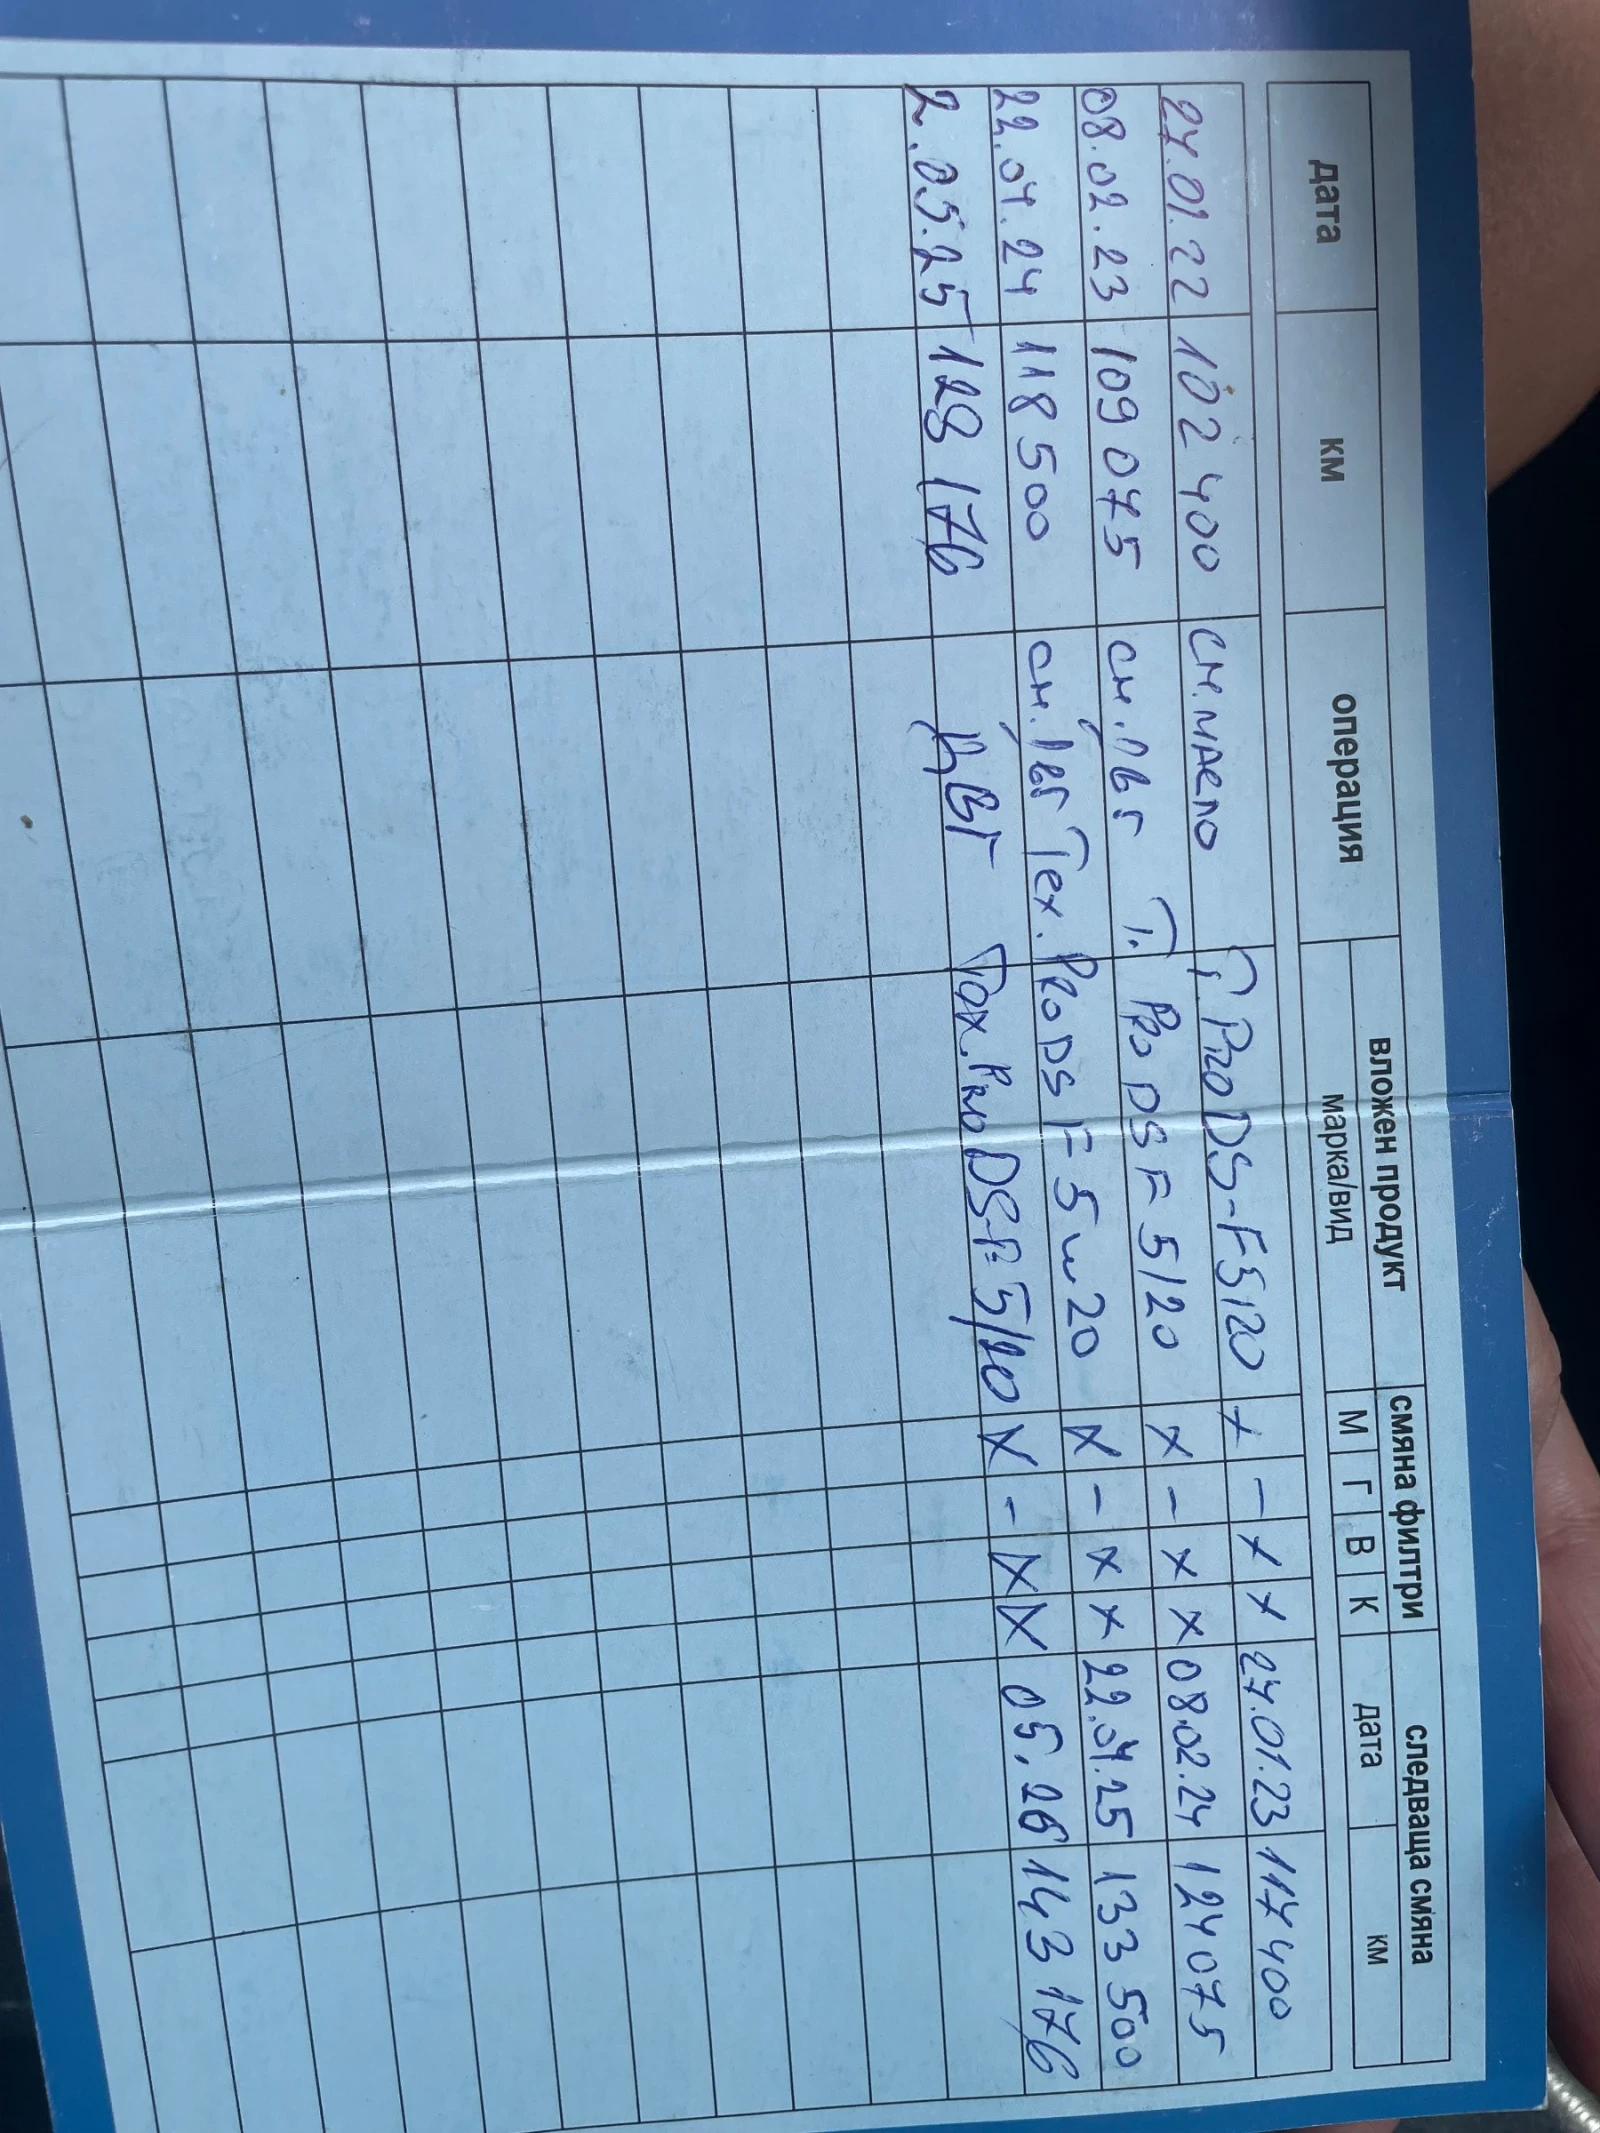 дата км операция вложен продукт смяна филтри следваща смяна
марка/вид М Г В К дата км
24.01.22 102 400 см.масло T. Pro DS-F5/20 x - x x 24.01.23 117 400
08.02.23 109 075 см. T. PRO DS F 5/20 x - x x 08.02.24 124 075
22.04.24 118 500 см. Tex. PRO DS F 5w20 x - x x 22.04.25 133 500
2.05.25 128 176 Pro DS-F 5/20 x - x x 05.26 143 176